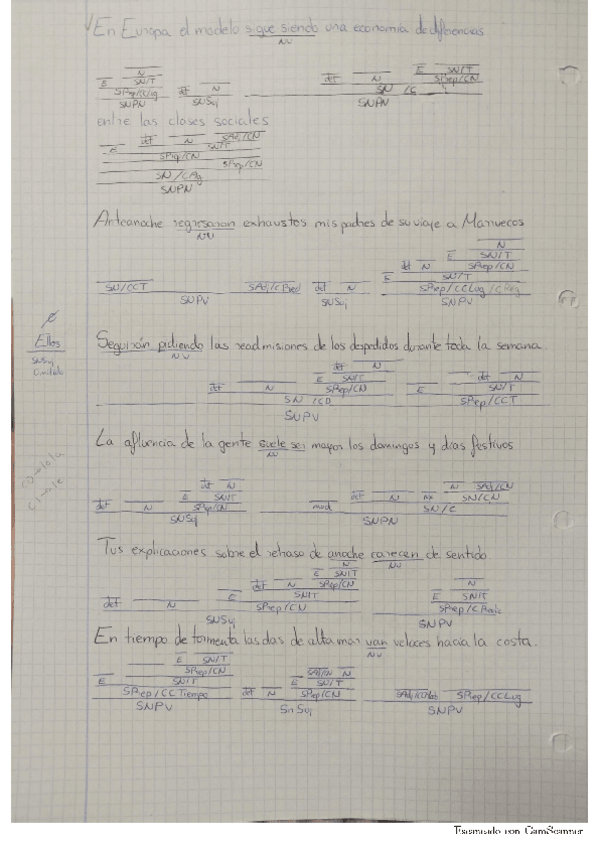 En Europa el modelo sigue siendo una economía de diferencias
NV
E N
SN/T
SPrep/CCLug
SNPV
det N
SNSuj
det N E SN/T
SPrep/CN
SN /C
SNPV
entre las clases sociales
E det N SAdj/CN
SN/T
SPrep/CN SPrep/CN
SN
SNPV
Anteanoche regresaron exhaustos mis padres de su viaje a Marruecos
NV
N
E SN/T
det N SPrep/CN
E SN/T
SN/CCT SAdj/CPred det N SPrep/CCLug
SNPV SNSuj SNPV
Ellos
SNSuj
Omitido
Seguirán pidiendo las readmisiones de los despedidos durante toda la semana
NV
det N det N
E SN/T
det N SPrep/CN E SN/T
SN /CD SPrep/CCT
SNPV
La afluencia de la gente suele ser mayor los domingos y días festivos
NV
det N N SAdj/CN
E SN/T det N nx SN/CN
det N SPrep/CN mod SN/C
SNSuj SNPN
Tus explicaciones sobre el retraso de anoche carecen de sentido
N NV
E SN/T
det N SPrep/CN N
E SN/T E SN/T
det N SPrep/CN
SNSuj SNPV
En tiempo de tormenta las olas de alta mar van veloces hacia la costa.
NV
E SN/T SAdj/CN N
SPrep/CN E SN/T
E SN/T det N SPrep/CN
SPrep/CC Tiempo SPrep/CCLug
SNPV Sn Suj SNPV
Escaneado con CamScanner